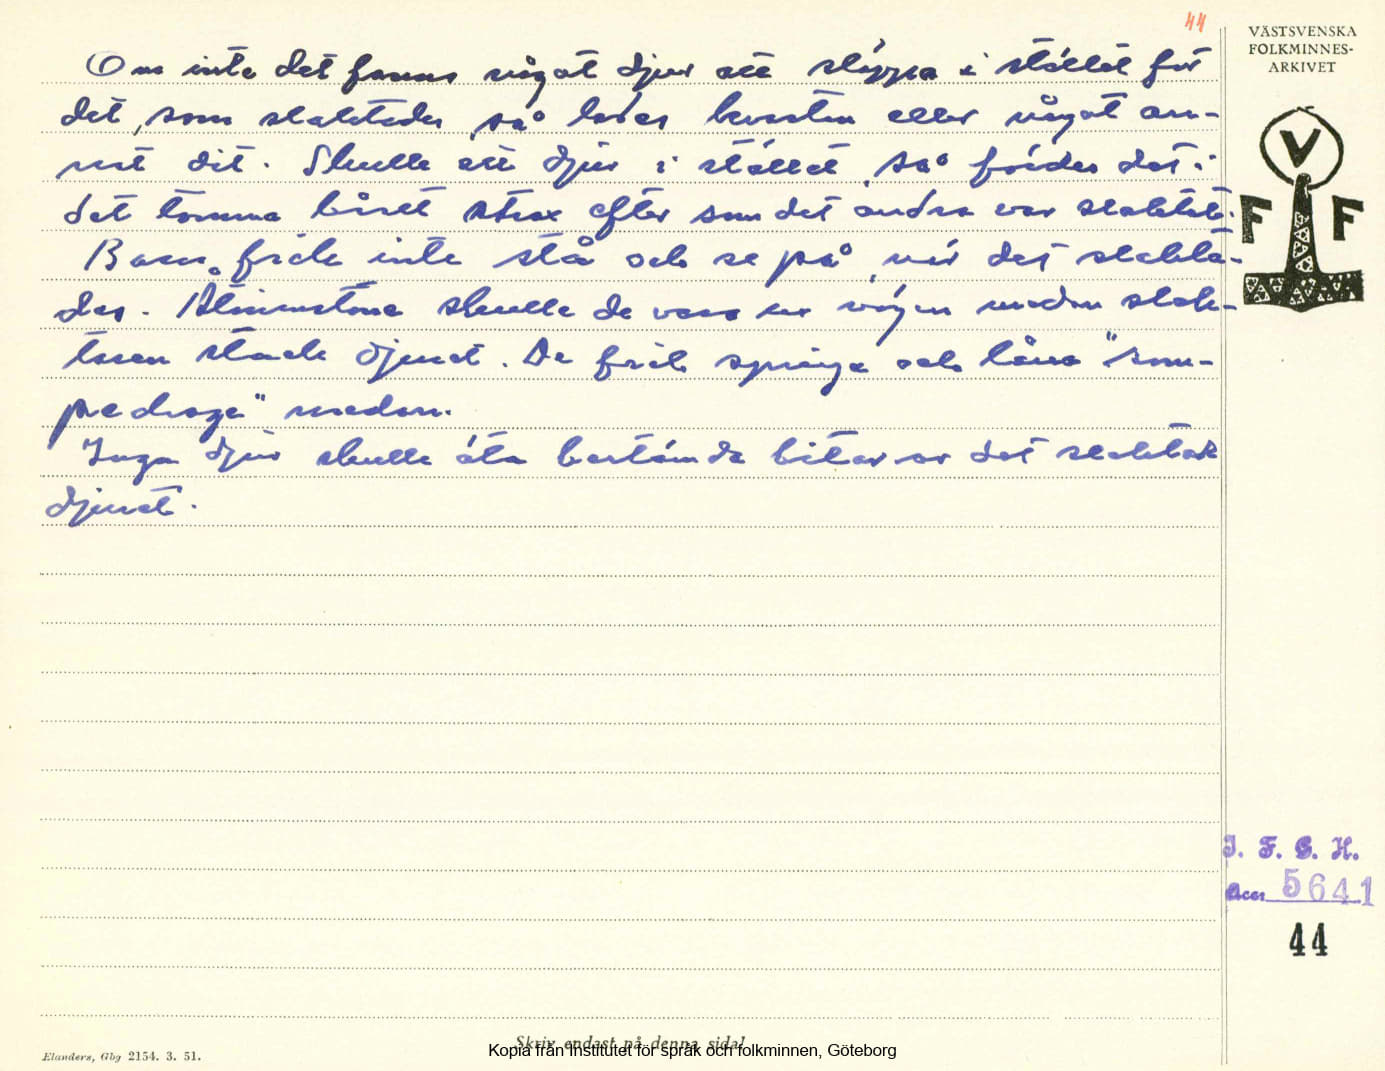 44
VÄSTSVENSKA
FOLKMINNES-
ARKIVET
V
F F
Om inte det fanns något djur att släppa i stället för
det, som slaktades, så lades kvasten eller något an-
nat dit. Skulle ett djur i stället, så föddes det i
det tomma båset strax efter som det andra var slaktat.
Barn fick inte stå och se på, när det slakta-
des. Åtminstone skulle de vara ur vägen medan slak-
taren stack djuret. De fick springa och låna "rom-
pedraga" medan.
Inga djur skulle äta bestämda bitar av det slaktade
djuret.
I. F. G. H.
Acc. 5641
44
Skriv endast på denna sida!
Elanders, Gbg 2154. 3. 51.
Kopia från Institutet för språk och folkminnen, Göteborg